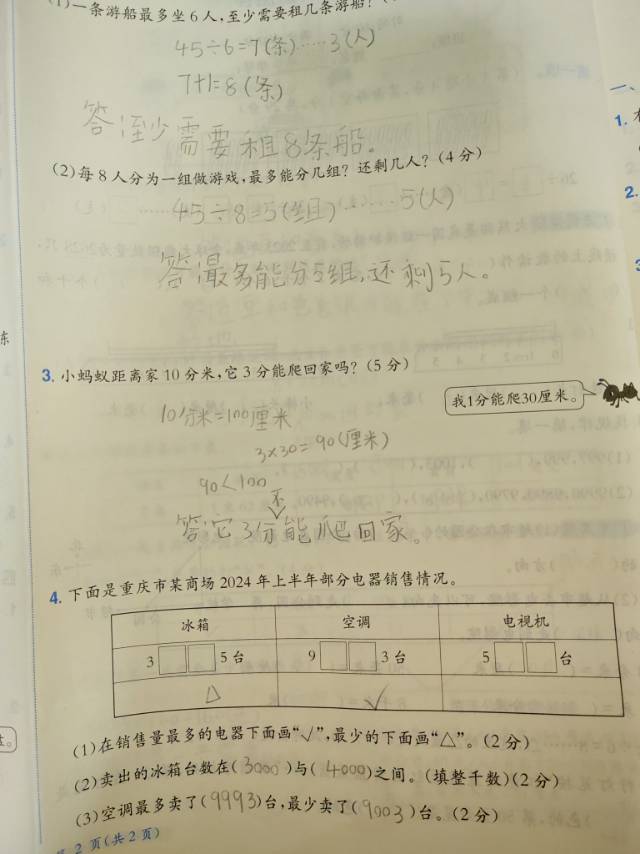 (1)一条游船最多坐6人,至少需要租几条游船?
45÷6=7(条)……3(人)
7+1=8(条)
答:至少需要租8条船。
(2)每8人分为一组做游戏,最多能分几组?还剩几人?(4分)
45÷8=5(组)……5(人)
答:最多能分5组,还剩5人。
3. 小蚂蚁距离家10分米,它3分能爬回家吗?(5分)
我1分能爬30厘米。
10分米=100厘米
3×30=90(厘米)
90<100
不
答:它3分能爬回家。
4. 下面是重庆市某商场2024年上半年部分电器销售情况。
冰箱 空调 电视机
3□□5台 9□□3台 5□□台
△ √
(1)在销售量最多的电器下面画“√”,最少的下面画“△”。(2分)
(2)卖出的冰箱台数在(3000)与(4000)之间。(填整千数)(2分)
(3)空调最多卖了(9993)台,最少卖了(9003)台。(2分)
2页(共2页)
一、
1.
2.